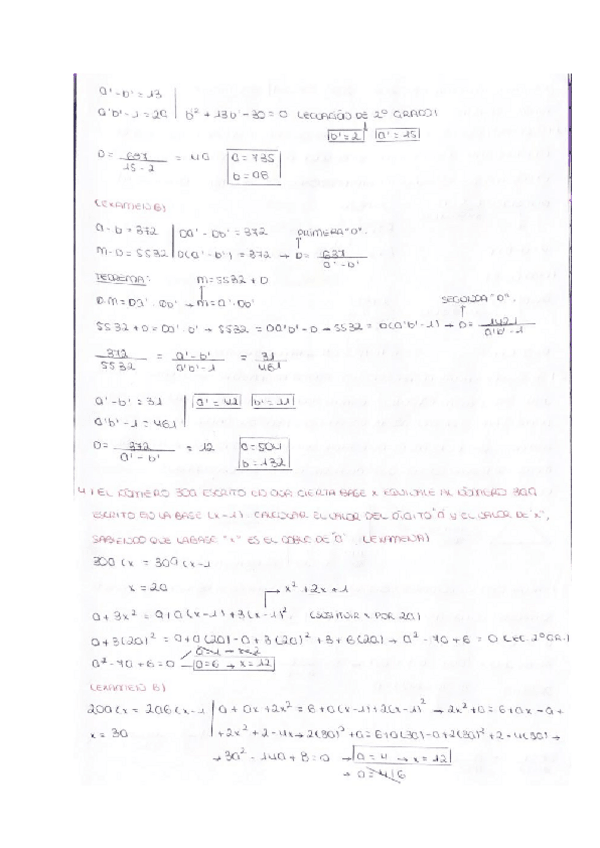 a'-b'=13
a'b'-1=29 | b'²+13b'-30=0 (ECUACIÓN DE 2º GRADO)
b'=2 a'=15
D= 637 / 15-2 = 49 a=735
b=98
(EXAMEN B)
a-b=372 | Da'-Db'=372 PRIMERA "D".
m-D=5532 | D(a'-b')=372 → D= 637 / a'-b'
TEOREMA: m=5532+D
D·m=Da'·Db' → m=a'·Db' SEGUNDA "D".
5532+D=Da'·b' → 5532=Da'b'-D → 5532=D(a'b'-1) → D= 1421 / a'b'-1
372 / 5532 = a'-b' / a'b'-1 = 31 / 461
a'-b'=31 | a'=42 b'=11
a'b'-1=461
D= 372 / a'-b' = 12 a=504
b=132
4) EL NÚMERO 30a ESCRITO EN UNA CIERTA BASE X EQUIVALE AL NÚMERO
ESCRITO EN LA BASE (x-1). CALCULAR EL VALOR DEL DÍGITO "a" Y EL VALOR DE "x",
SABIENDO QUE LA BASE "x" ES EL DOBLE DE "a" (EXAMEN A)
(x = (x-1
x=2a → x²+2x+1
a+3x²=a+a(x-1)+3(x-1)². (SUSTITUIR x POR 2a)
a+3(2a)²=a+a(2a)-a+3(2a)²+3+6(2a) → a²-7a+6=0 (EC. 2ºGR.)
a²-7a+6=0 a=6 → x=12
(EXAMEN B)
20a(x=2a6(x-1 | a+ax+2x²=6+a(x-1)+2(x-1)² → 2x²+a=6+ax-a+
x=3a | +2x²+2-4x → 2(3a)²+a=6+a(3a)-a+2(3a)²+2-4(3a) →
→ 3a²-14a+8=0 → a=4 → x=12